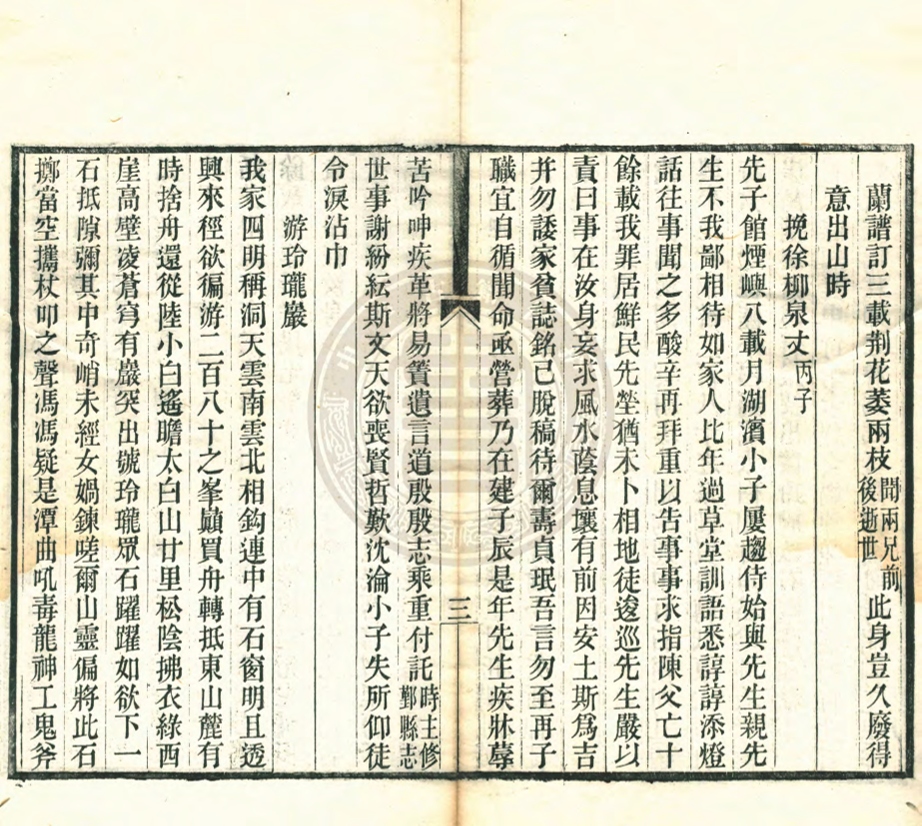 蘭譜訂三載荆花萎兩枝聞兩兄前後逝世此身豈久廢得
意出山時
挽徐柳泉丈丙子
先子館煙嶼八載月湖濱小子屢趨侍始與先生親先
生不我鄙相待如家人比年過草堂訓語悉諄諄添燈
話往事聞之多酸辛再拜重以告事事求指陳父亡十
餘載我罪居鮮民先塋猶未卜相地徒逡巡先生嚴以
責曰事在汝身妄求風水蔭息壤有前因安土斯爲吉
并勿諉家貧誌銘已脫稿待爾壽貞珉吾言勿至再子
職宜自循聞命亟營葬乃在建子辰是年先生疾牀蓐
三
苦吟呻疾革將易簀遺言道殷殷志乘重付託時主修鄞縣志
世事謝紛紜斯文天欲喪賢哲歎沈淪小子失所仰徒
令淚沾巾
游玲瓏巖
我家四明稱洞天雲南雲北相鈎連中有石窗明且透
興來徑欲徧游二百八十之峯巔買舟轉抵東山麓有
時捨舟還從陸小白遙瞻太白山廿里松陰拂衣綠西
崖高壁凌蒼穹有巖突出號玲瓏眾石躍躍如欲下一
石抵隙彌其中奇峭未經女媧鍊嗟爾山靈偏將此石
擲當空攜杖叩之聲馮馮疑是潭曲吼毒龍神工鬼斧